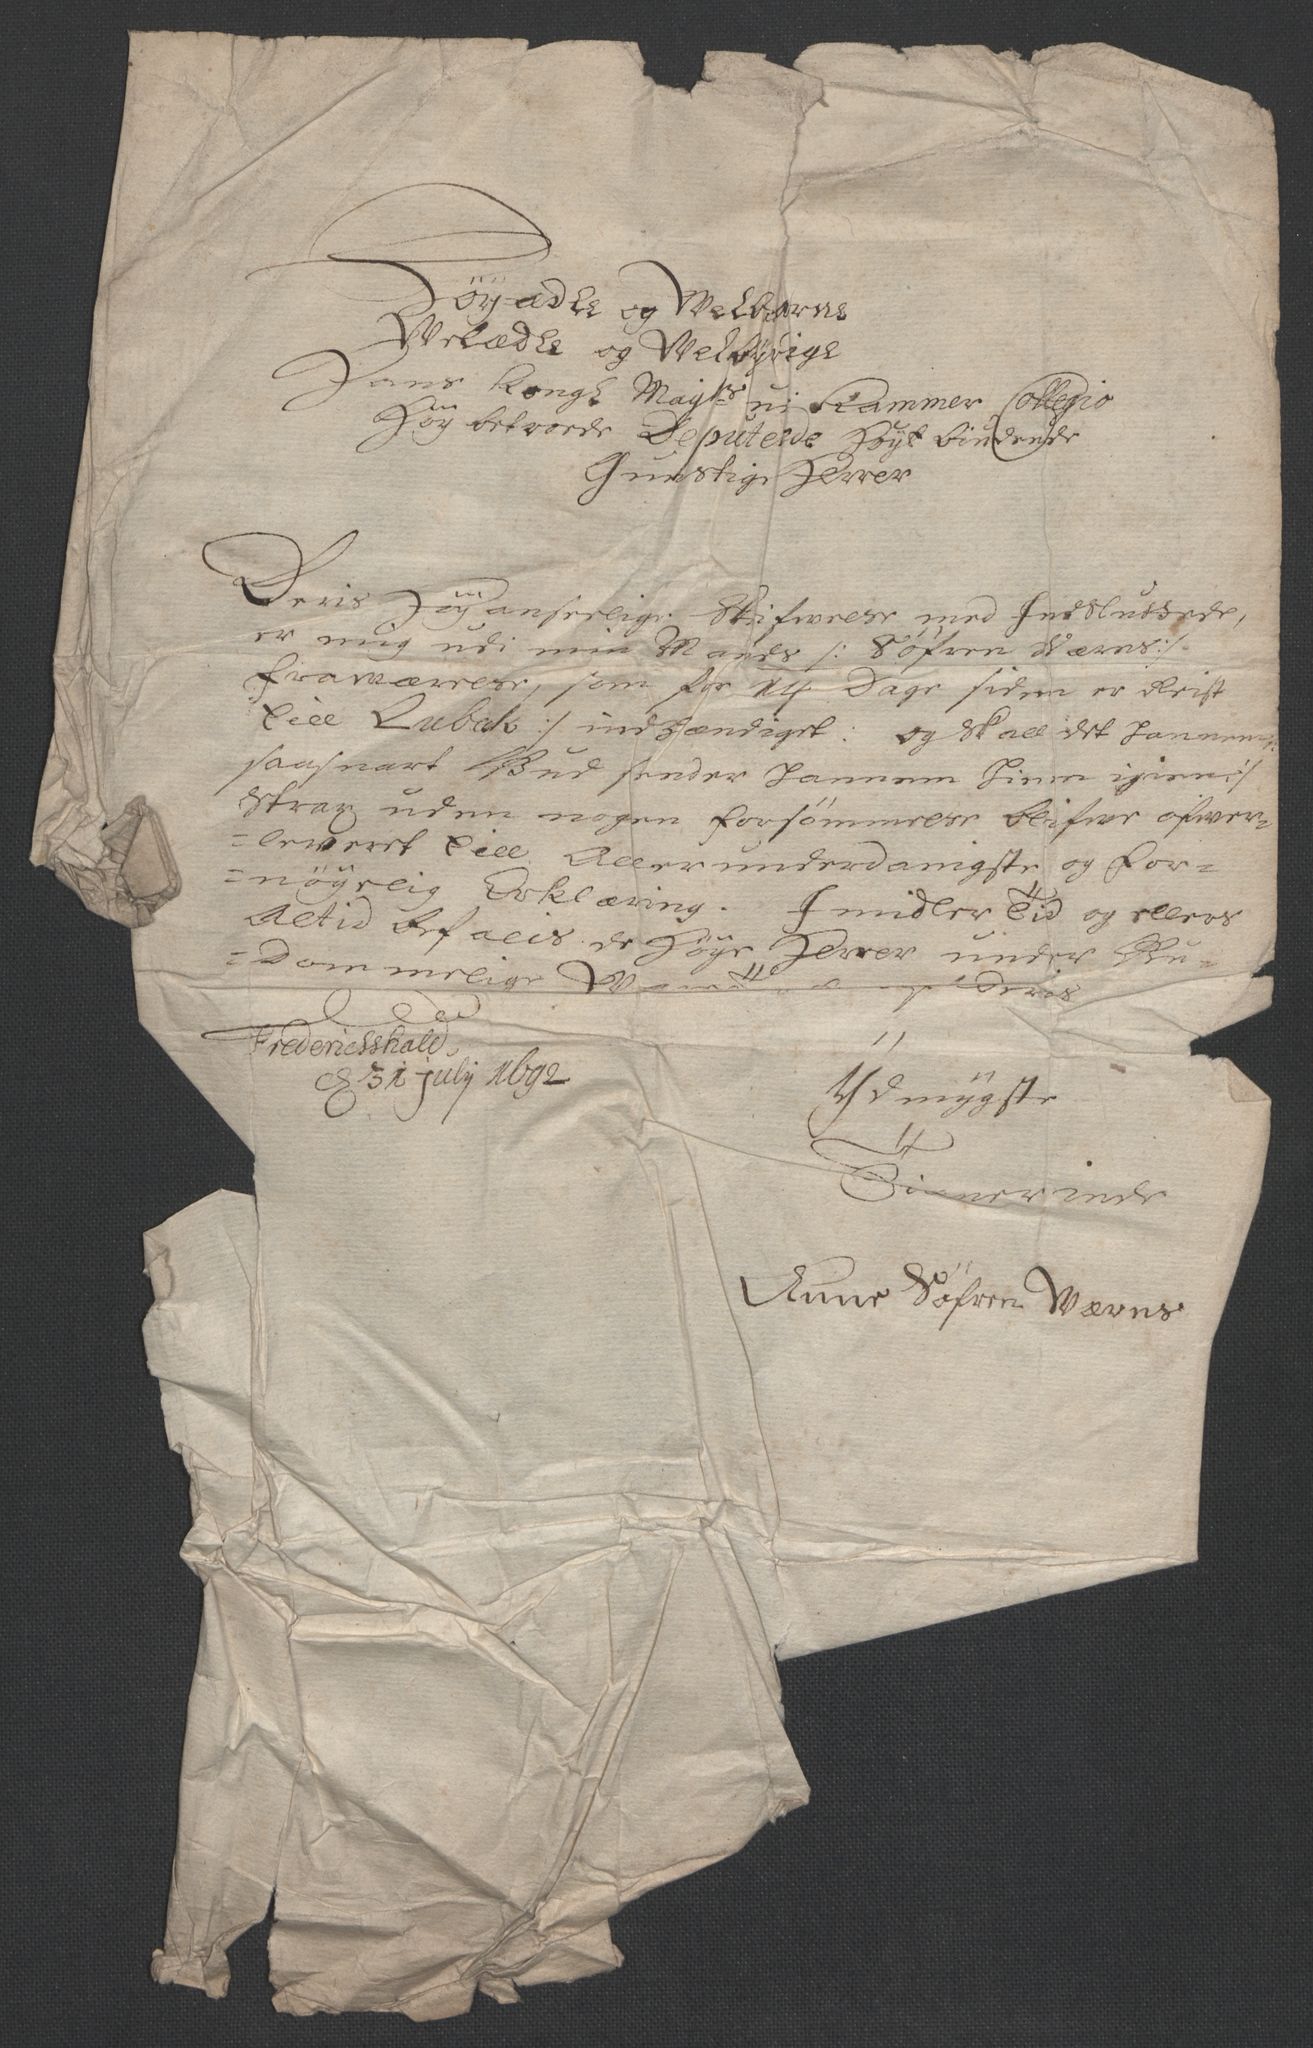 Höÿ-adle og Welbarne
Welædle og Welbÿrdige
Hans kongl Mayts. ui Kammer Collegio
Höy betroede Deputerde Höyt biudende
Gunstige Herrer
Deris Höÿanseelige Skrifwelse med Indsluttede,
er mig udi min Mands /: Söfren Wærns:/
frawærelse, som for 14 Dage siden er Reist
till Lubek :/ indhændiget: og skall det hannem
saasnart Bud sender hannem hiem igien:/
Strax uden nogen forsömmelse blifwe ofwer-
=leweret till Allerunderdanigste og for-
=nöÿelig Erklæring. Imidler tid og ellers
Altid befalis de Höye Herrer under Gu-
=dommelige Deris
Fredericshald
d 31 julij 1692
Ydmÿgste
Tienerinde
Anne Söfren Wærns